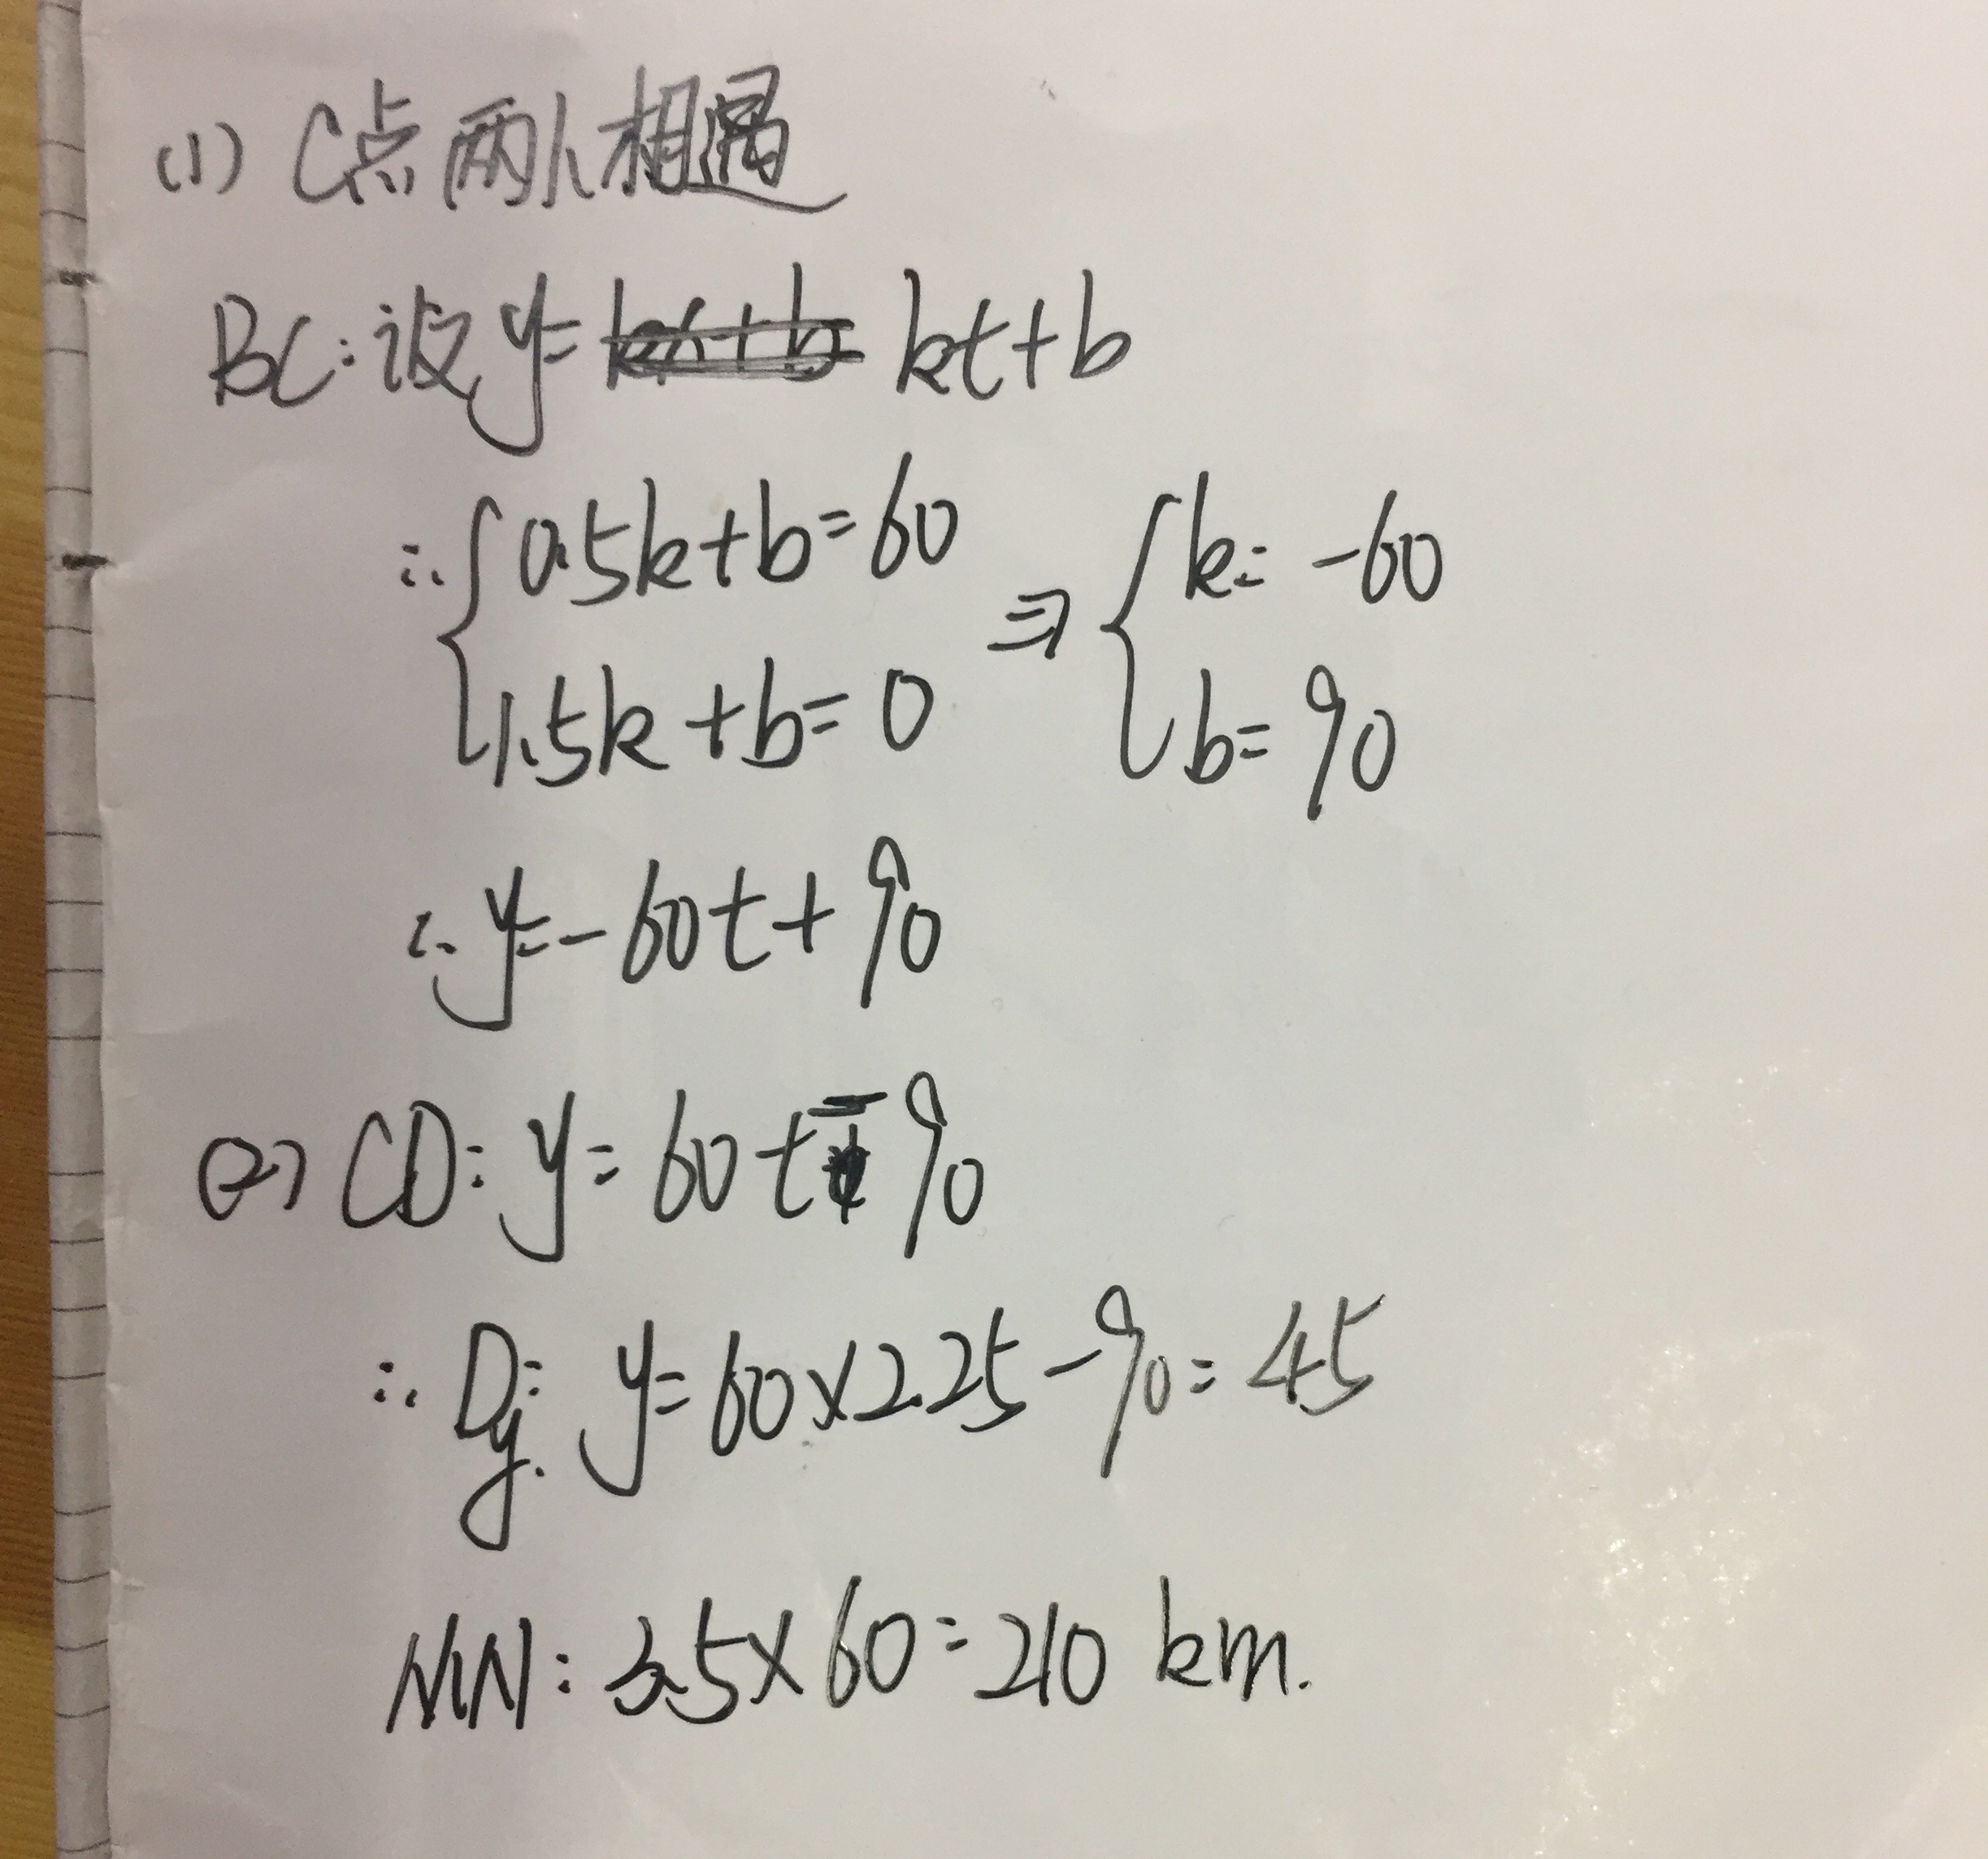 (1) C点两人相遇
BC: 设y= kt+b
∴ { 0.5k+b=60 ⇒ { k= -60
1.5k+b=0 b=90
∴ y=-60t+90
(2) CD: y=60t-90
∴ Dy: y=60×2.25-90=45
MN: 3.5×60=210 km.